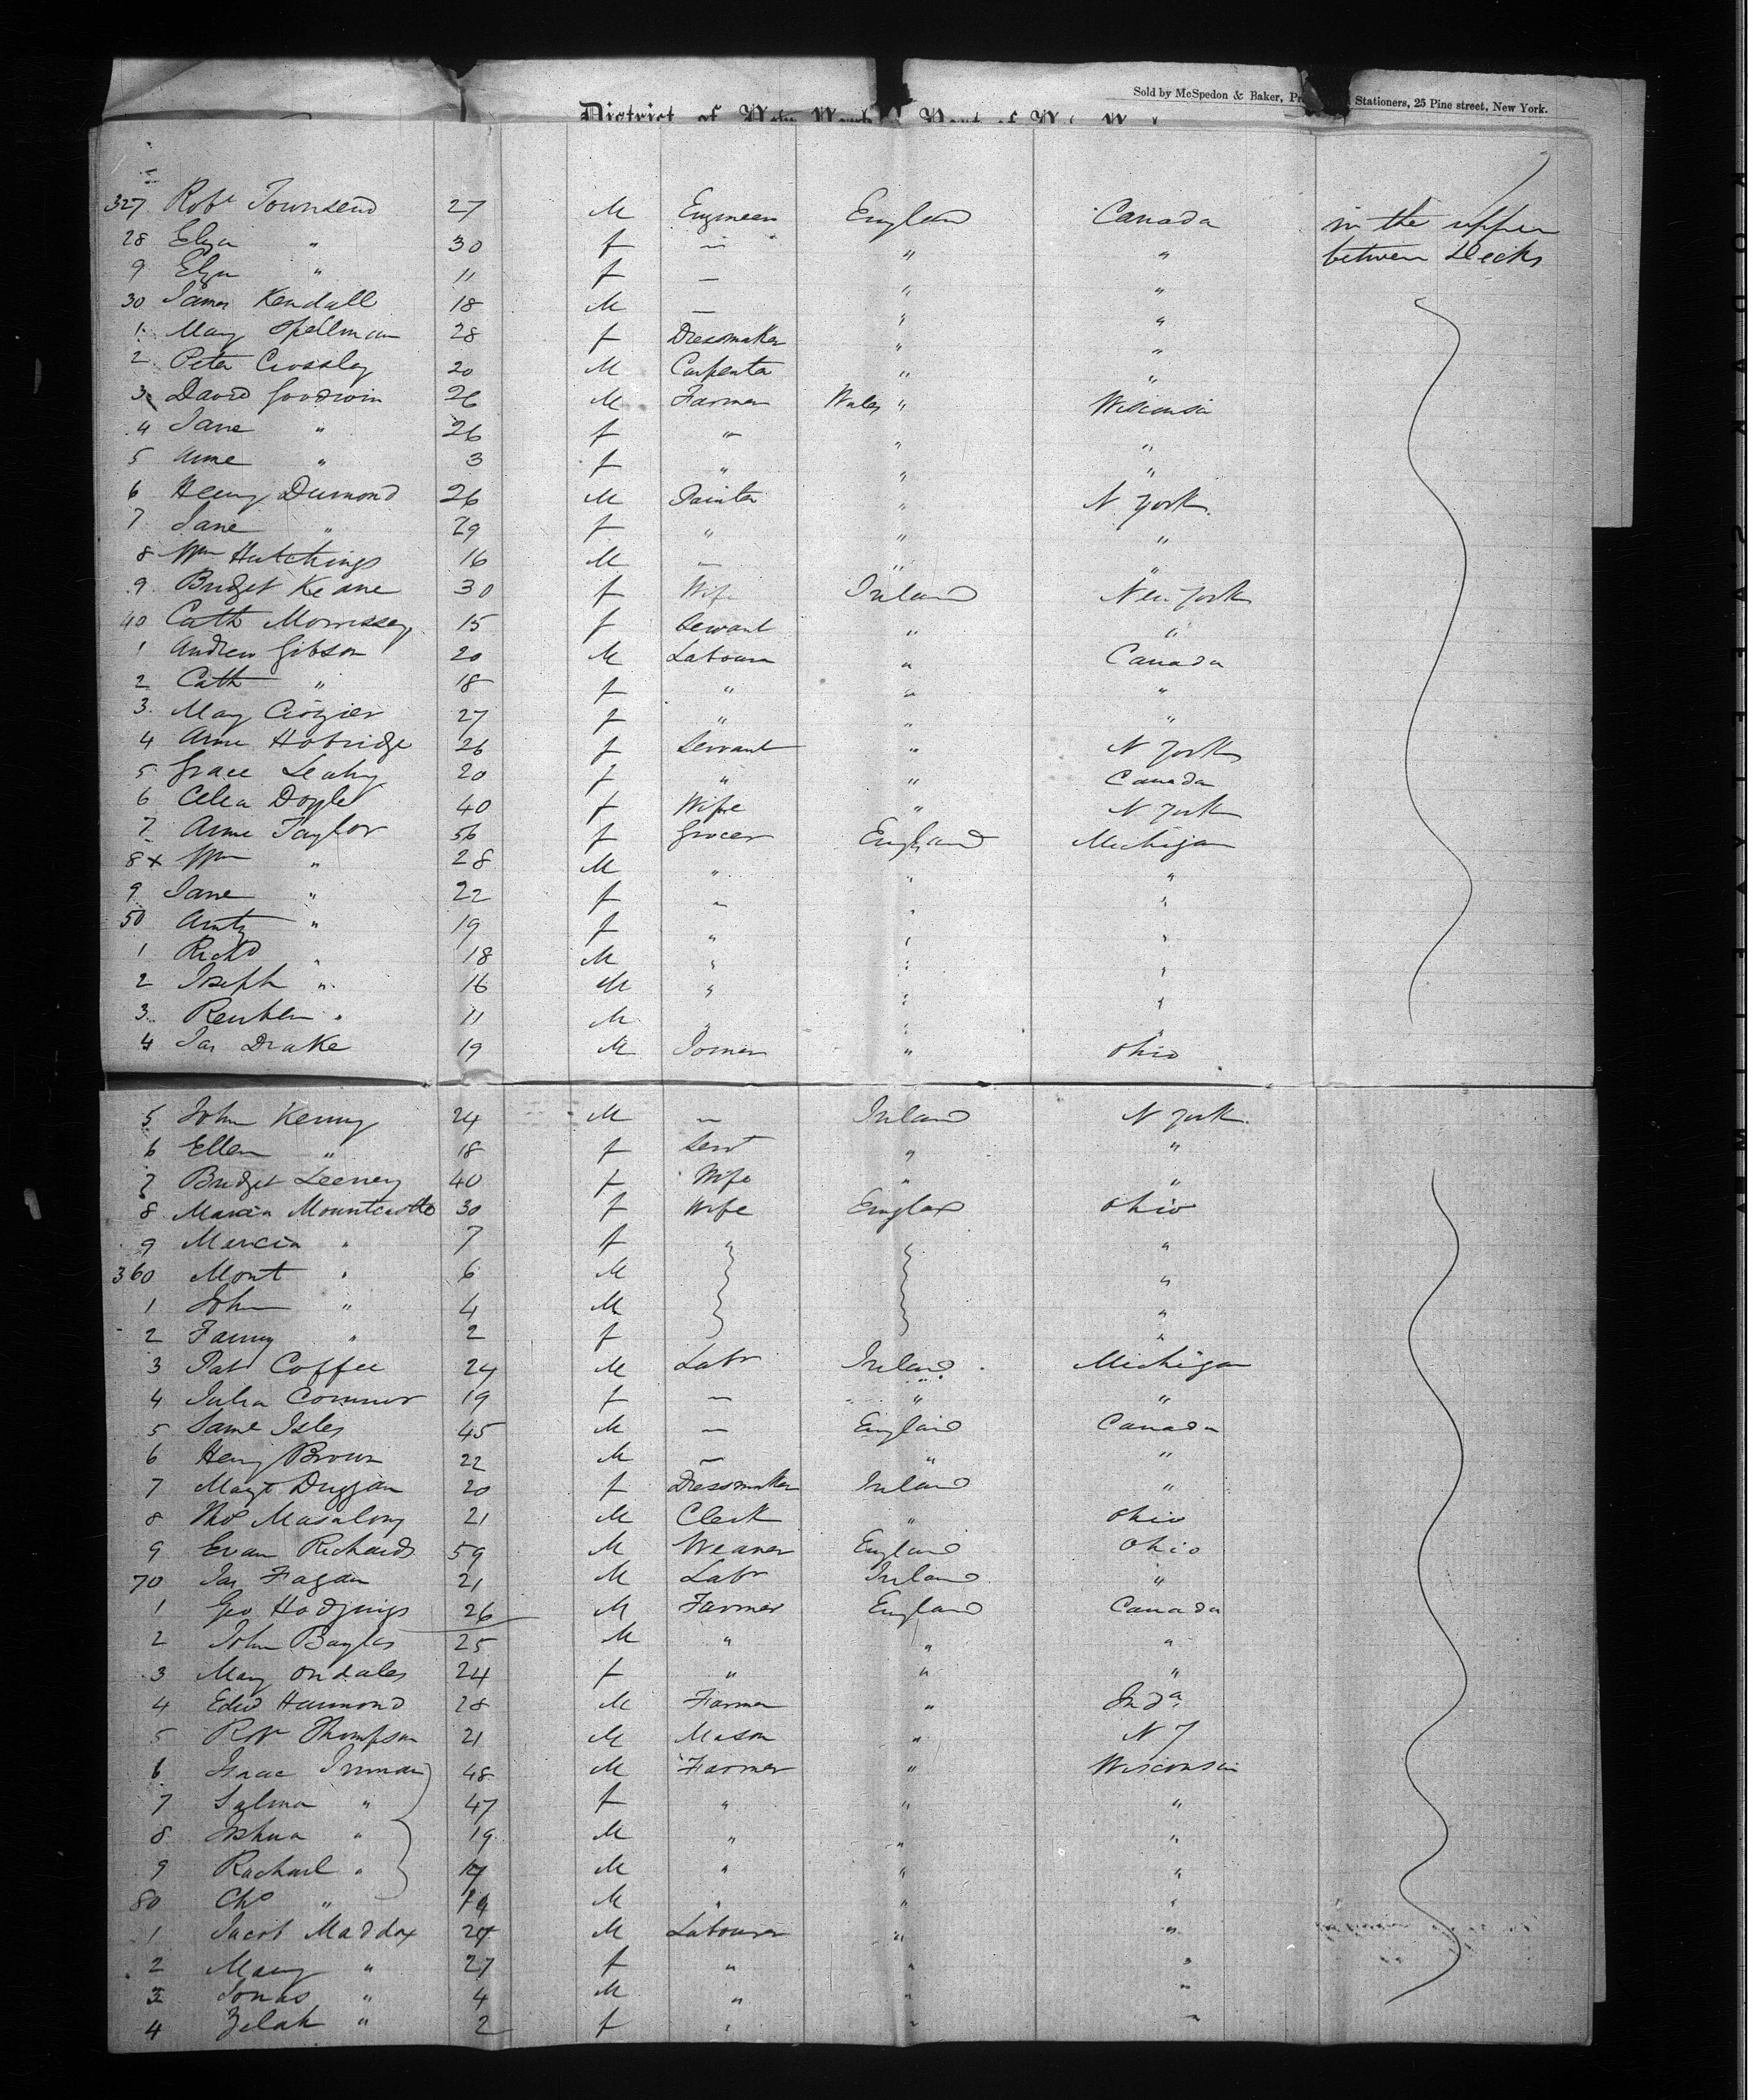 Sold by McSpedon & Baker, Pr Stationers, 25 Pine street, New York.
District of New York Port of New York
327 Robt Townsend 27 M Engineer England Canada in the upper
28 Eliza " 30 f — " " between Decks
9 Eliza " 11 f — " "
30 James Kendall 18 M — " "
1 Mary Spellman 28 f Dressmaker " "
2 Peter Crossley 20 M Carpenter " "
3 David Goodwin 26 M Farmer Wales " Wisconsin
4 Jane " 26 f " " "
5 Anne " 3 f " " "
6 Henry Dumond 26 M Painter " N York
7 Jane " 29 f " " "
8 Wm Hutchings 16 M — " "
9 Bridget Keane 30 f Wife Ireland New York
40 Cath Morrissey 15 f Servant " "
1 Andrew Gibson 20 M Labourer " Canada
2 Cath " 18 f " " "
3 Mary Crozier 27 f " " "
4 Anne Hobridge 26 f Servant " N York
5 Grace Leahy 20 f " " Canada
6 Celia Doyle 40 f Wife " N York
7 Anne Taylor 56 f Grocer England Michigan
8 x Wm " 28 M " " "
9 Jane " 22 f " " "
50 " 19 f " " "
1 Richd " 18 M " " "
2 Joseph " 16 M " " "
3 Reuben " 11 M " " "
4 Jas Drake 19 M Joiner " Ohio
5 John Kenny 24 M — Ireland N York
6 Ellen " 18 f Servt " "
7 Bridget Leeney 40 f Wife " "
8 Maria Mountcastle 30 f Wife England Ohio
9 Mercia " 7 f " " "
360 Mont " 6 M "
1 John " 4 M "
2 Fanny " 2 f "
3 Pat Coffee 24 M Labr Ireland Michigan
4 Julia Connor 19 f — " "
5 Saml Isles 45 M — England Canada
6 Henry Brown 22 M — " "
7 Margt Duggan 20 f Dressmaker Ireland "
8 Thos 21 M Clerk " Ohio
9 Evan Richards 59 M Weaver England Ohio
70 Jas Fagan 21 M Labr Ireland "
1 Geo Hodgings 26 M Farmer England Canada
2 John Bayles 25 M " " "
3 Mary Ondales 24 f " " "
4 Edwd Hammond 28 M Farmer " Inda
5 Thompson 21 M Mason " N Y
6 Isaac Inman 48 M Farmer " Wisconsin
7 Salma " 47 f " " "
8 Joshua " 19 M " " "
9 Rachael " 17 M " " "
80 Chs " 14 M " " "
1 Jacob Maddox 27 M Labourer " "
2 Mary " 27 f " " "
3 Jonas " 4 M " " "
4 Zelah " 2 f " " "